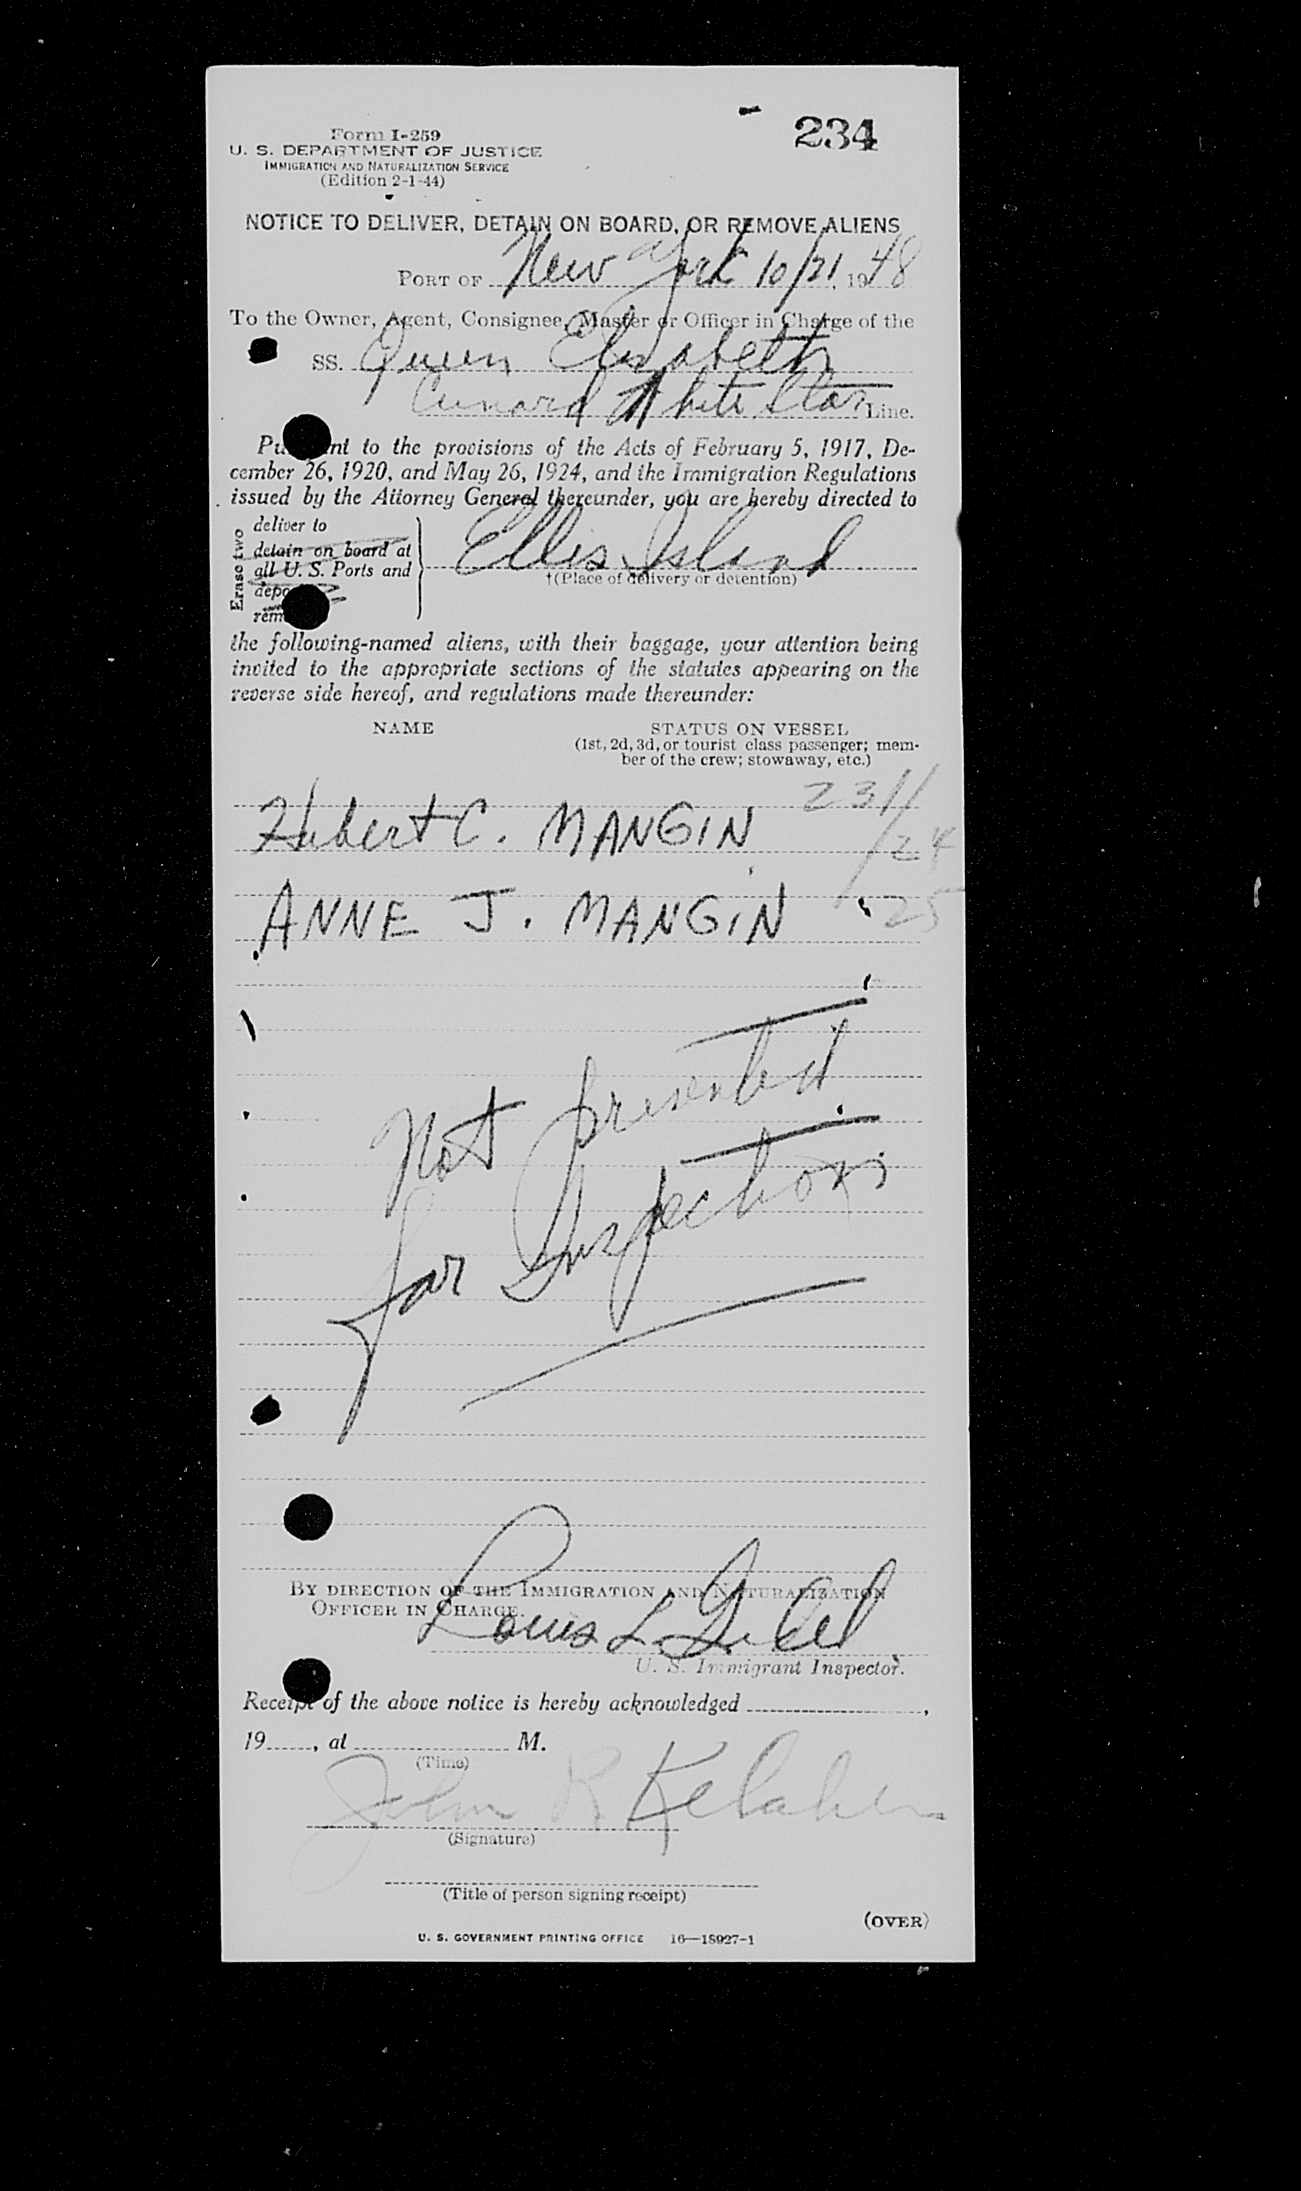 234
Form I-259
U. S. DEPARTMENT OF JUSTICE
IMMIGRATION AND NATURALIZATION SERVICE
(Edition 2-1-44)
NOTICE TO DELIVER, DETAIN ON BOARD, OR REMOVE ALIENS
PORT OF New York 10/21, 1948
To the Owner, Agent, Consignee, Master or Officer in Charge of the
SS. Queen Elizabeth
Cunard White Star Line.
Pu nt to the provisions of the Acts of February 5, 1917, De-
cember 26, 1920, and May 26, 1924, and the Immigration Regulations
issued by the Attorney General thereunder, you are hereby directed to
Erase two
deliver to
detain on board at
all U. S. Ports and
depo
rem
Ellis Island
†(Place of delivery or detention)
the following-named aliens, with their baggage, your attention being
invited to the appropriate sections of the statutes appearing on the
reverse side hereof, and regulations made thereunder:
NAME STATUS ON VESSEL
(1st, 2d, 3d, or tourist class passenger; mem-
ber of the crew; stowaway, etc.)
231/
Hubert C. MANGIN /24
ANNE J. MANGIN 25
Not presented
for Inspection
BY DIRECTION OF THE IMMIGRATION AND NATURALIZATION
OFFICER IN CHARGE.
Louis L.
U. S. Immigrant Inspector.
Receipt of the above notice is hereby acknowledged ,
19 , at M.
(Time)
John R Kelaher
(Signature)
(Title of person signing receipt)
(OVER)
U. S. GOVERNMENT PRINTING OFFICE 16—18927-1